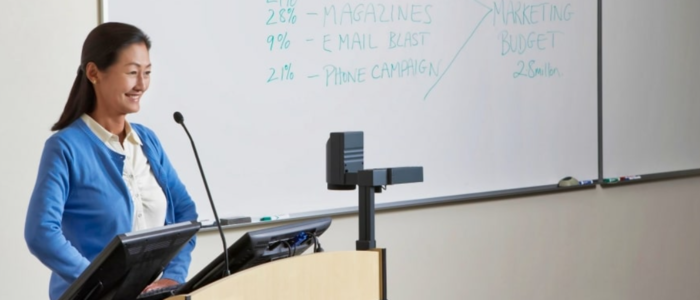 28% - MAGAZINES
9% - EMAIL BLAST
21% - PHONE CAMPAIGN
MARKETING
BUDGET